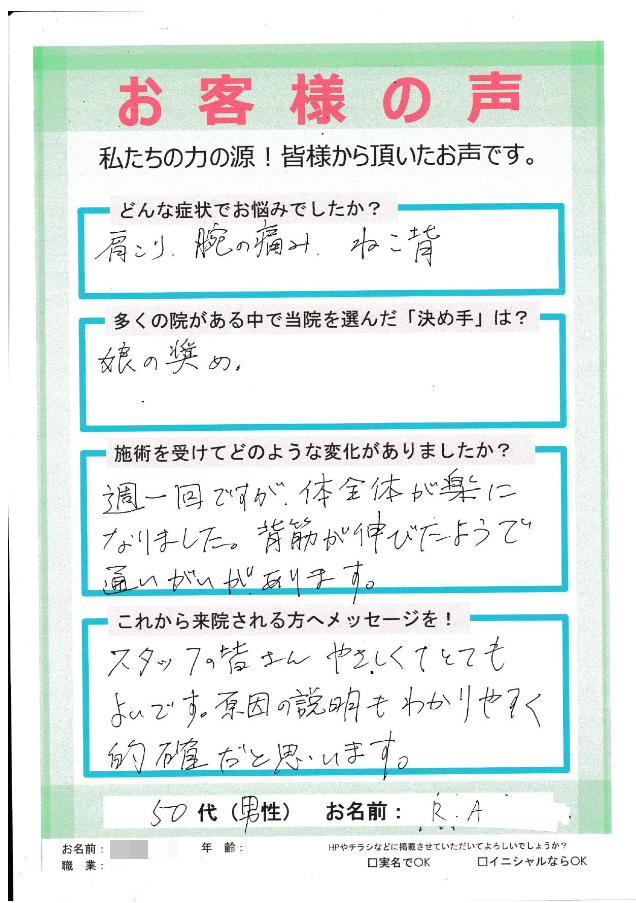 お客様の声
私たちの力の源！皆様から頂いたお声です。
どんな症状でお悩みでしたか？
肩こり、腕の痛み、ねこ背
多くの院がある中で当院を選んだ「決め手」は？
娘の奨め。
施術を受けてどのような変化がありましたか？
週一回ですが、体全体が楽に
なりました。背筋が伸びたようで
通いがいがあります。
これから来院される方へメッセージを！
スタッフの皆さん やさしくてとても
よいです。原因の説明もわかりやすく
的確だと思います。
50代（男性） お名前： R.A
お名前： 年齢： HPやチラシなどに掲載させていただいてよろしいでしょうか？
職業： □実名でOK □イニシャルならOK